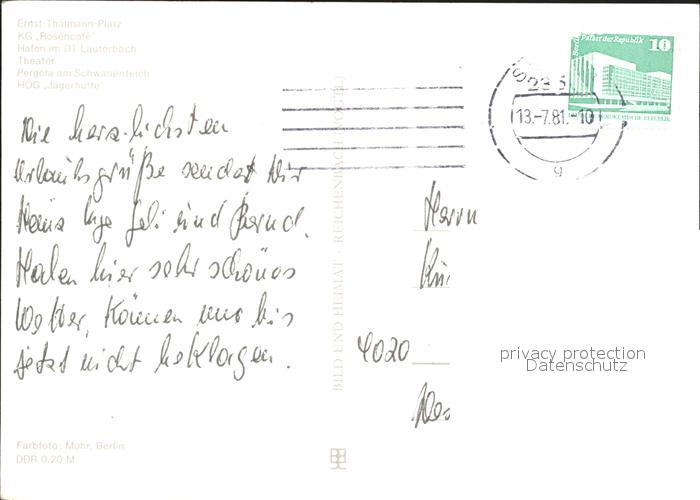 Ernst-Thälmann-Platz
KG „Rosencafé"
Hafen im OT Lauterbach
Theater
Pergola am Schwanenteich
HOG „Jägerhütte"
Die herzlichsten
Urlaubsgrüße sendet Dir
Hans Inge Geli und Bernd.
Haben hier sehr schönes
Wetter, können uns bis
jetzt nicht beklagen.
Farbfoto: Mohr, Berlin
DDR 0,20 M
BILD UND HEIMAT · REICHENBACH (VOGTL)
Berlin
Palast der Republik
10
DEUTSCHE DEMOKRATISCHE REPUBLIK
13.-7.81.-10
g
Herrn
4020
privacy protection
Datenschutz